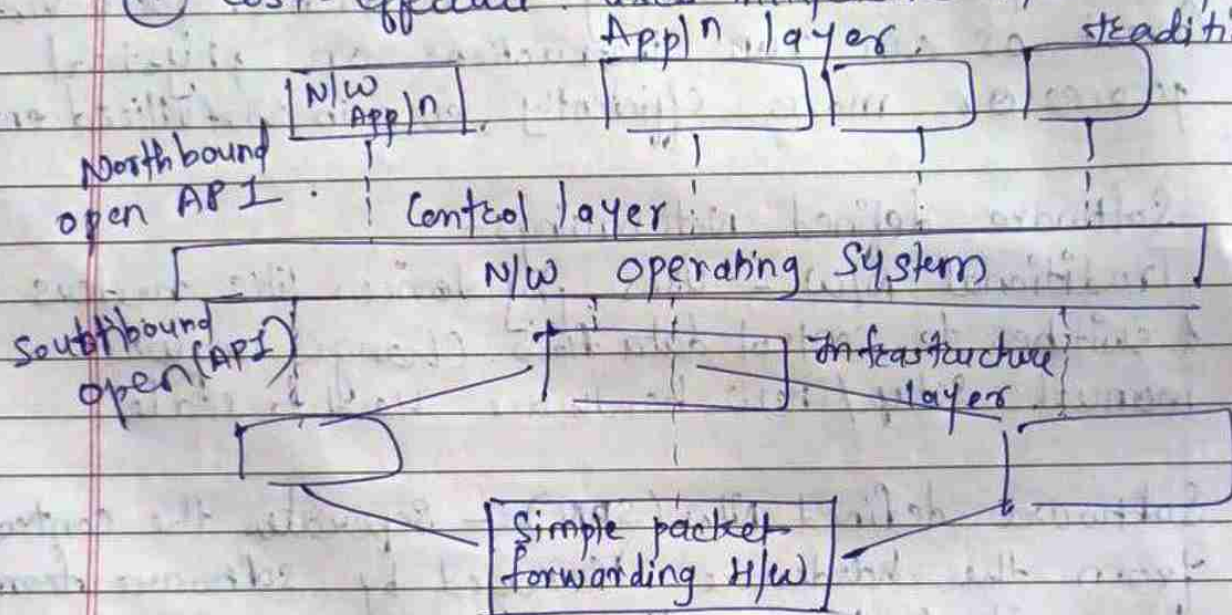 cost effective used
Appln layer
traditi
N/W
Appln
Northbound
open API
Control layer
N/W operating System
Southbound
open (API)
Infrastructure
layer
Simple packet
forwarding H/W